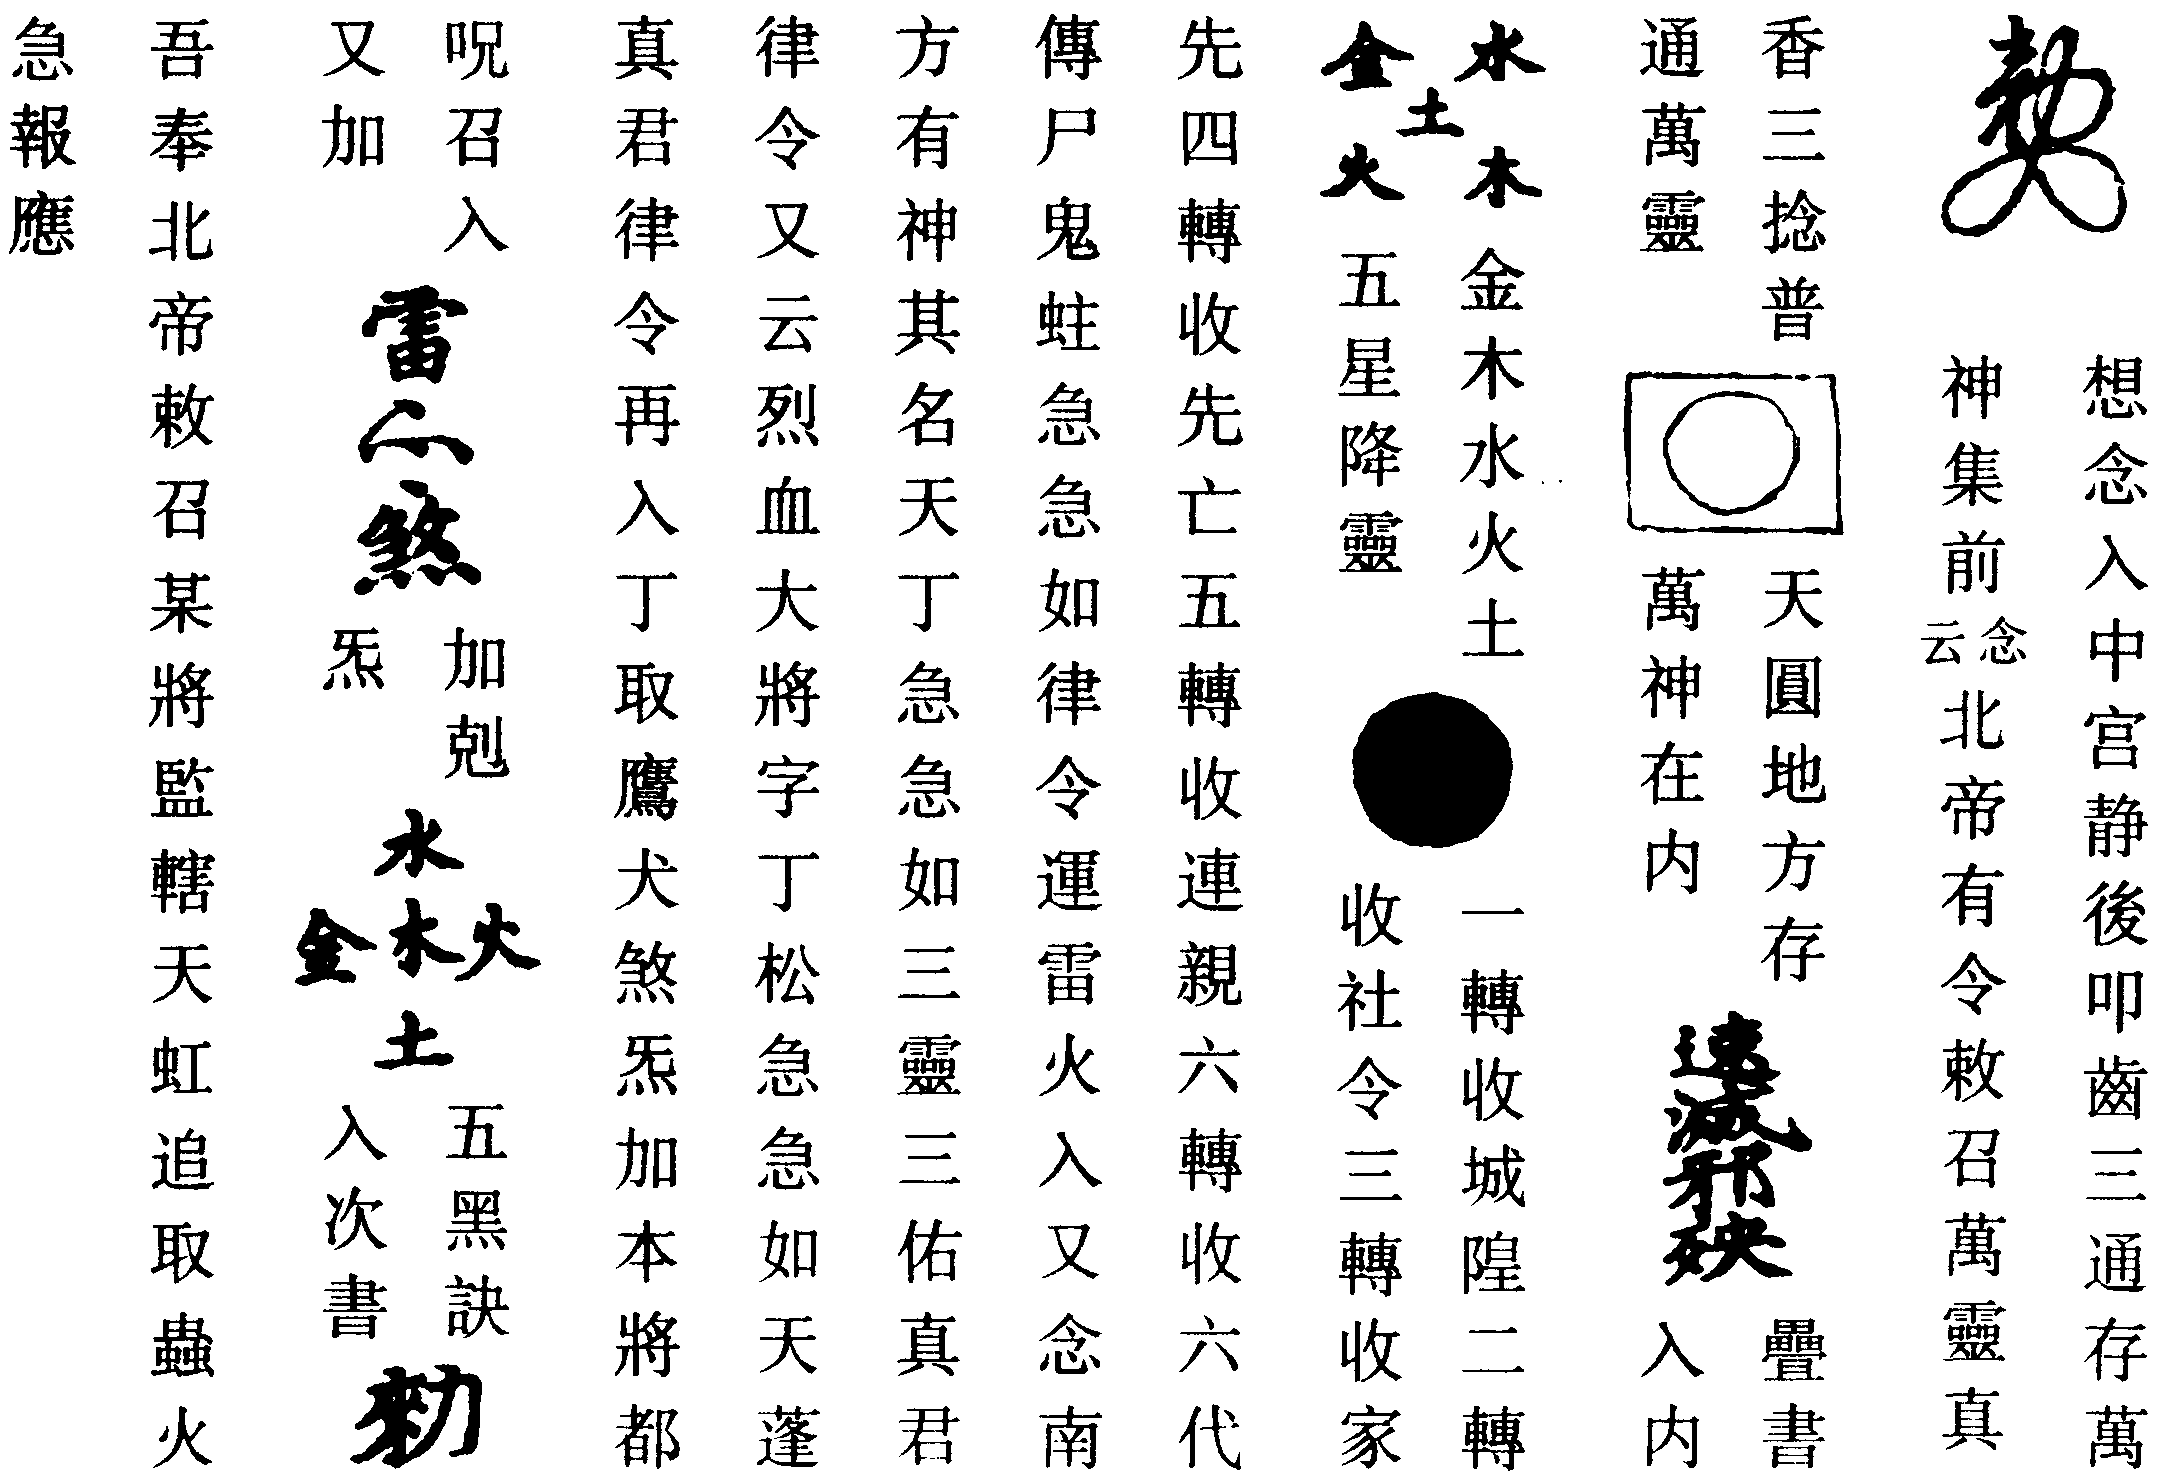 勅
想念入中宫静後叩齒三通存萬
神集前念云北帝有令敕召萬靈真
香三捻普
通萬靈
天圓地方存
萬神在内
速滅邪殃
疊書
入内
水金
土
木火
金木水火土
五星降靈
一轉收城隍二轉
收社令三轉收家
先四轉收先亡五轉收連親六轉收六代
傳尸鬼蛀急急如律令運雷火入又念南
方有神其名天丁急急如三靈三佑真君
律令又云烈血大將字丁松急急如天蓬
真君律令再入丁取鷹犬煞炁加本將都
呪召入
又加
雷火煞
加剋
炁
水
火木金
土
五黑訣
入次書
勅
吾奉北帝敕召某將監轄天虹追取蟲火
急報應